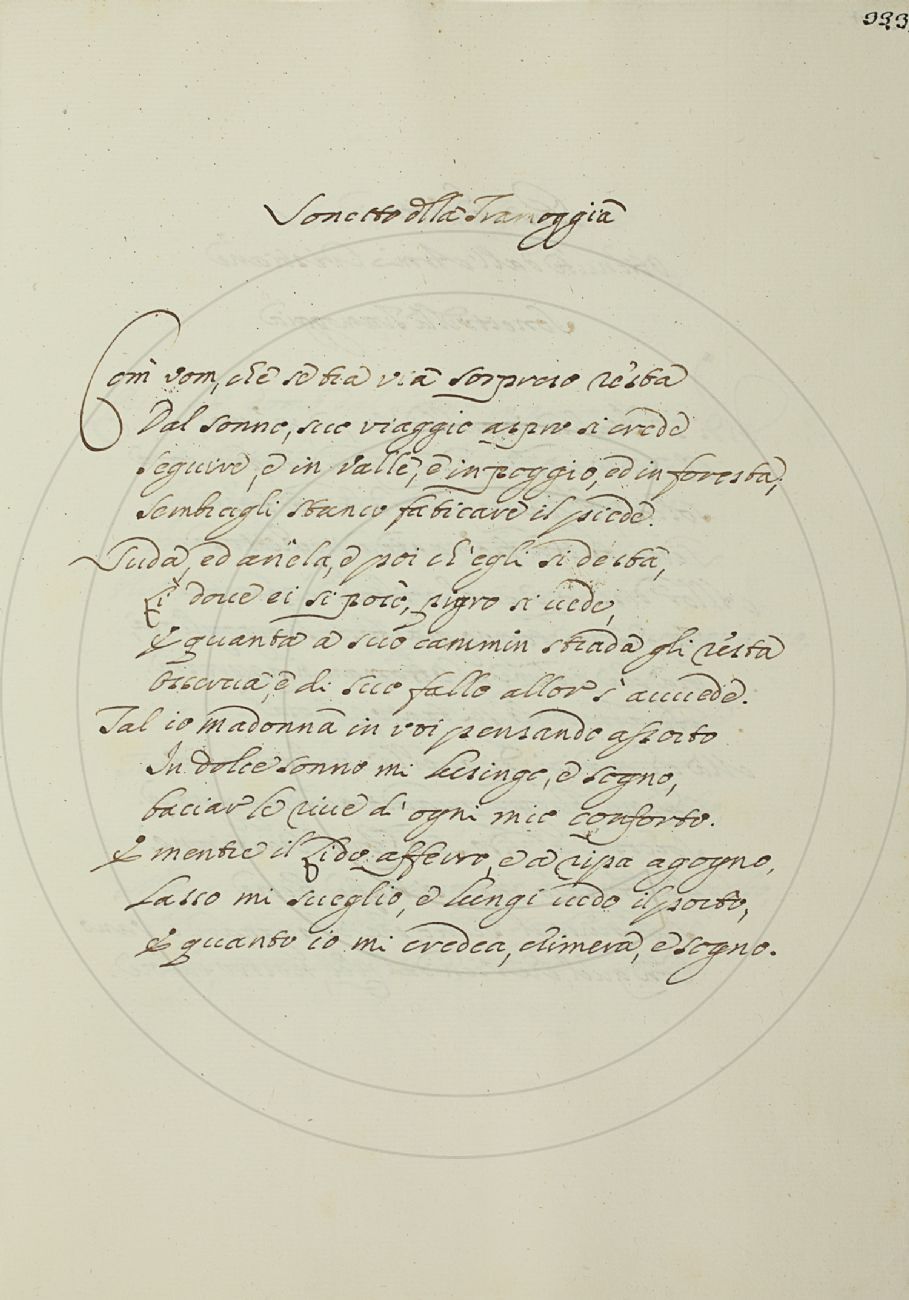 933
Sonetto dlla Tramoggia
Com' vom, che se tra via sorpreso resta
Dal sonno, suo viaggio aspro si crede
Seguire, e in valle, e in poggio, ed in foresta,
Sembragli stanco faticare il piede.
Suda, ed anela, e poi ch' egli si desta,
Lì doue ei si posò, pigro si uede,
E quanta a suo cammin strada gli resta
Osserua, e di suo fallo allor s' auuede.
Tal io madonna in voi pensando assorto
In dolce sonno mi lusingo, e sogno,
baciar le riue d' ogni mio conforto.
E mentre il lido afferro, e a ripa agogno,
Lasso mi sueglio, e lungi uedo il porto,
E quanto io mi credea, chimera, e sogno.